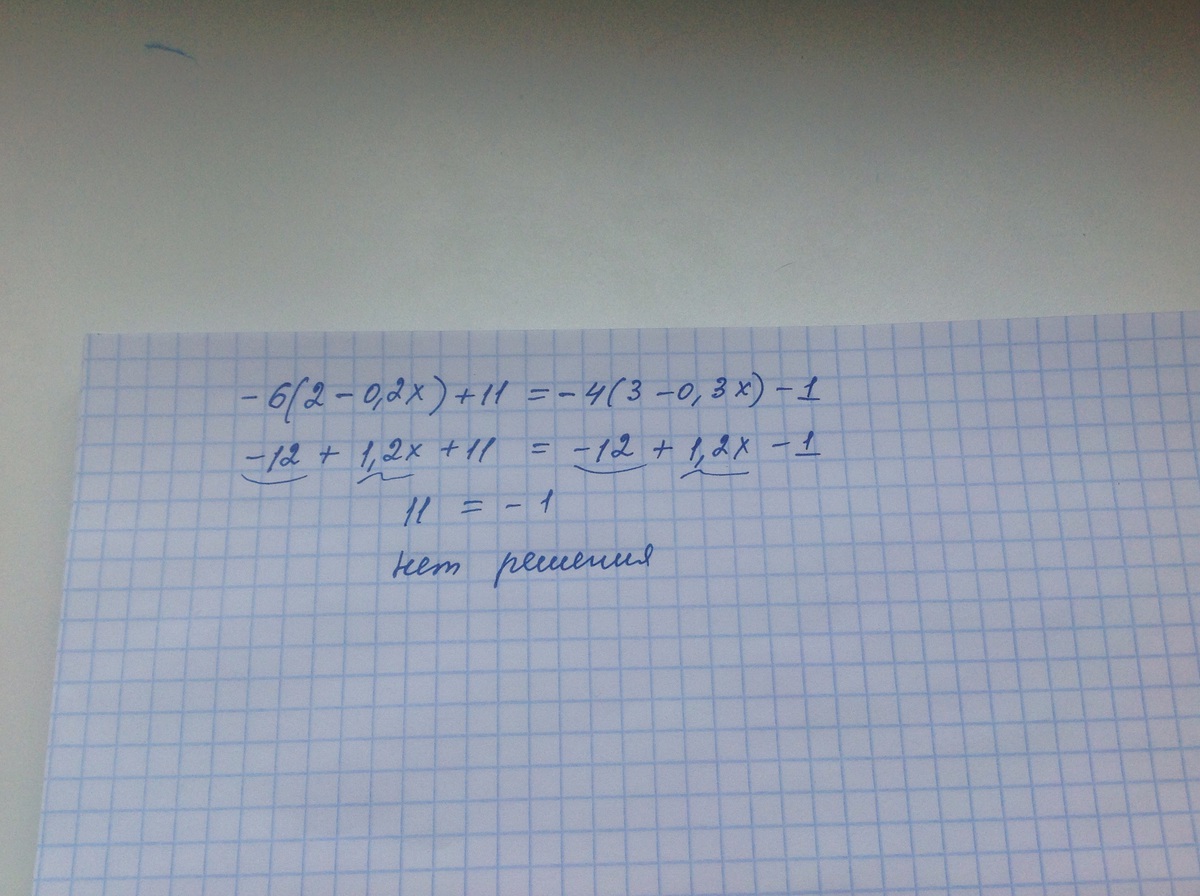 -6(2-0,2x)+11 =-4(3-0,3x)-1
-12 + 1,2x +11 = -12 + 1,2x -1
11 = -1
нет решения